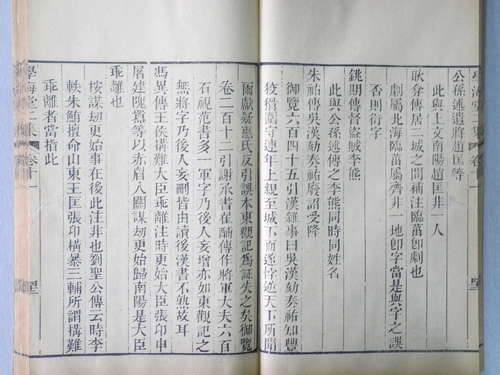 公孫述遣將趙匡等
此與上文南陽趙匡非一人
耿弇傳居二城之間補注臨菑卽劇也
劇屬北海臨菑屬齊非一地卽字當是與字之誤
否則衍字
銚期傳督盜賊李熊
此與公孫述傳之李熊同時同姓名
朱祐傳吳漢劾奏祐廢詔受降
御覽六百四十五引漢雜事曰吳漢劾奏祐知豐
圍守連年上親至城下而遂悖逆天下所聞
爾獻疑惠氏反引誤本東觀記爲証失之矣御覽
卷二百十二引謝承書翟酺傳作將軍大夫六百
石視范書多一軍字乃後人妄增亦如東觀記之
無將字乃後人妄刪皆由讀後漢書不熟故耳
馮異傳王侯搆難大臣乖離注時更始大臣張卬申
屠建隗囂等以赤眉入關謀劫更始歸南陽是大臣
乖離也
按謀劫更始事在後此注非也到聖公傳云時李
軼朱鮪擅命山東王匡張卬橫暴三輔所謂搆難
乖離者當指此
學海堂二集 卷十一